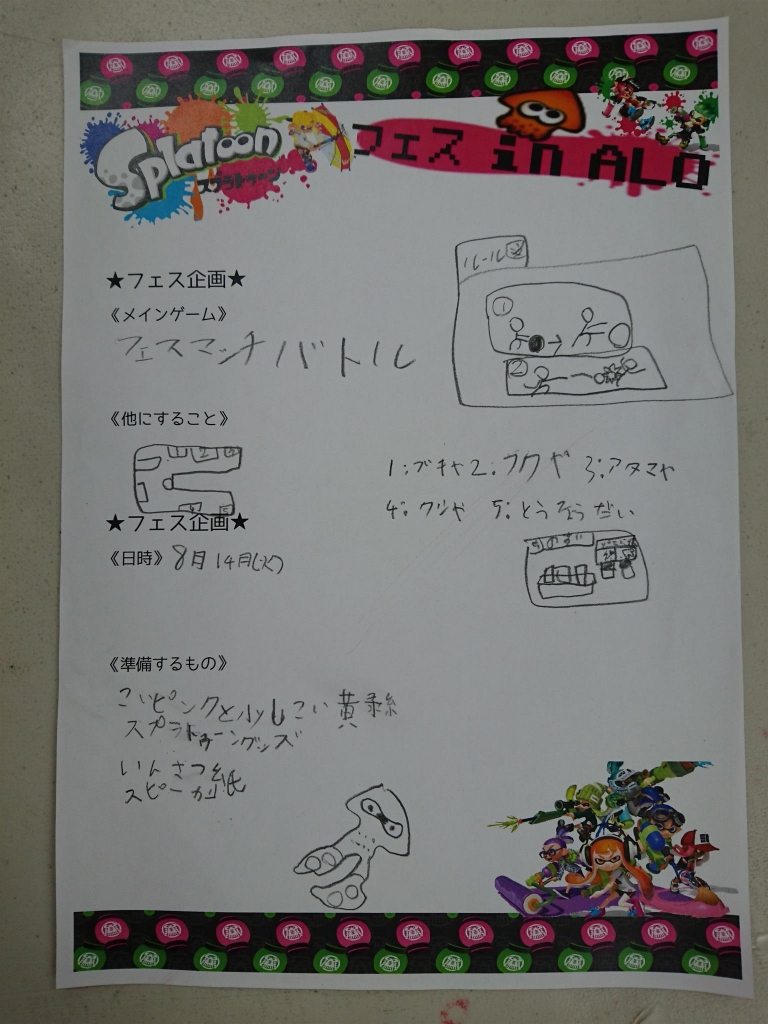 Splatoon
スプラトゥーン
フェス in ALO
★フェス企画★
ルール
《メインゲーム》
フェスマッチバトル
①
②
《他にすること》
1:ブキヤ 2:フクヤ 3:アタマヤ
4:クツヤ 5:とうろうだい
★フェス企画★
《日時》8月14月(火)
《準備するもの》
こいピンクと少しこい黄緑
スプラトゥーングッズ
いんさつ紙
スピーカー